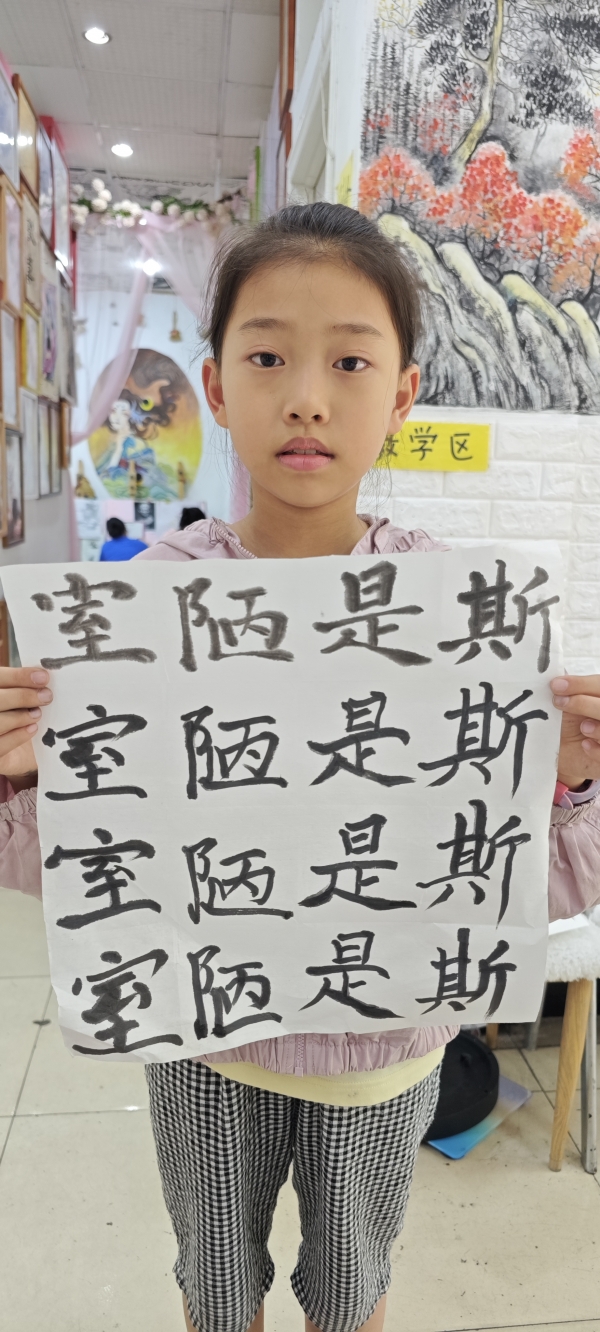 教学区
斯斯斯斯
是是是是
陋陋陋陋
室室室室